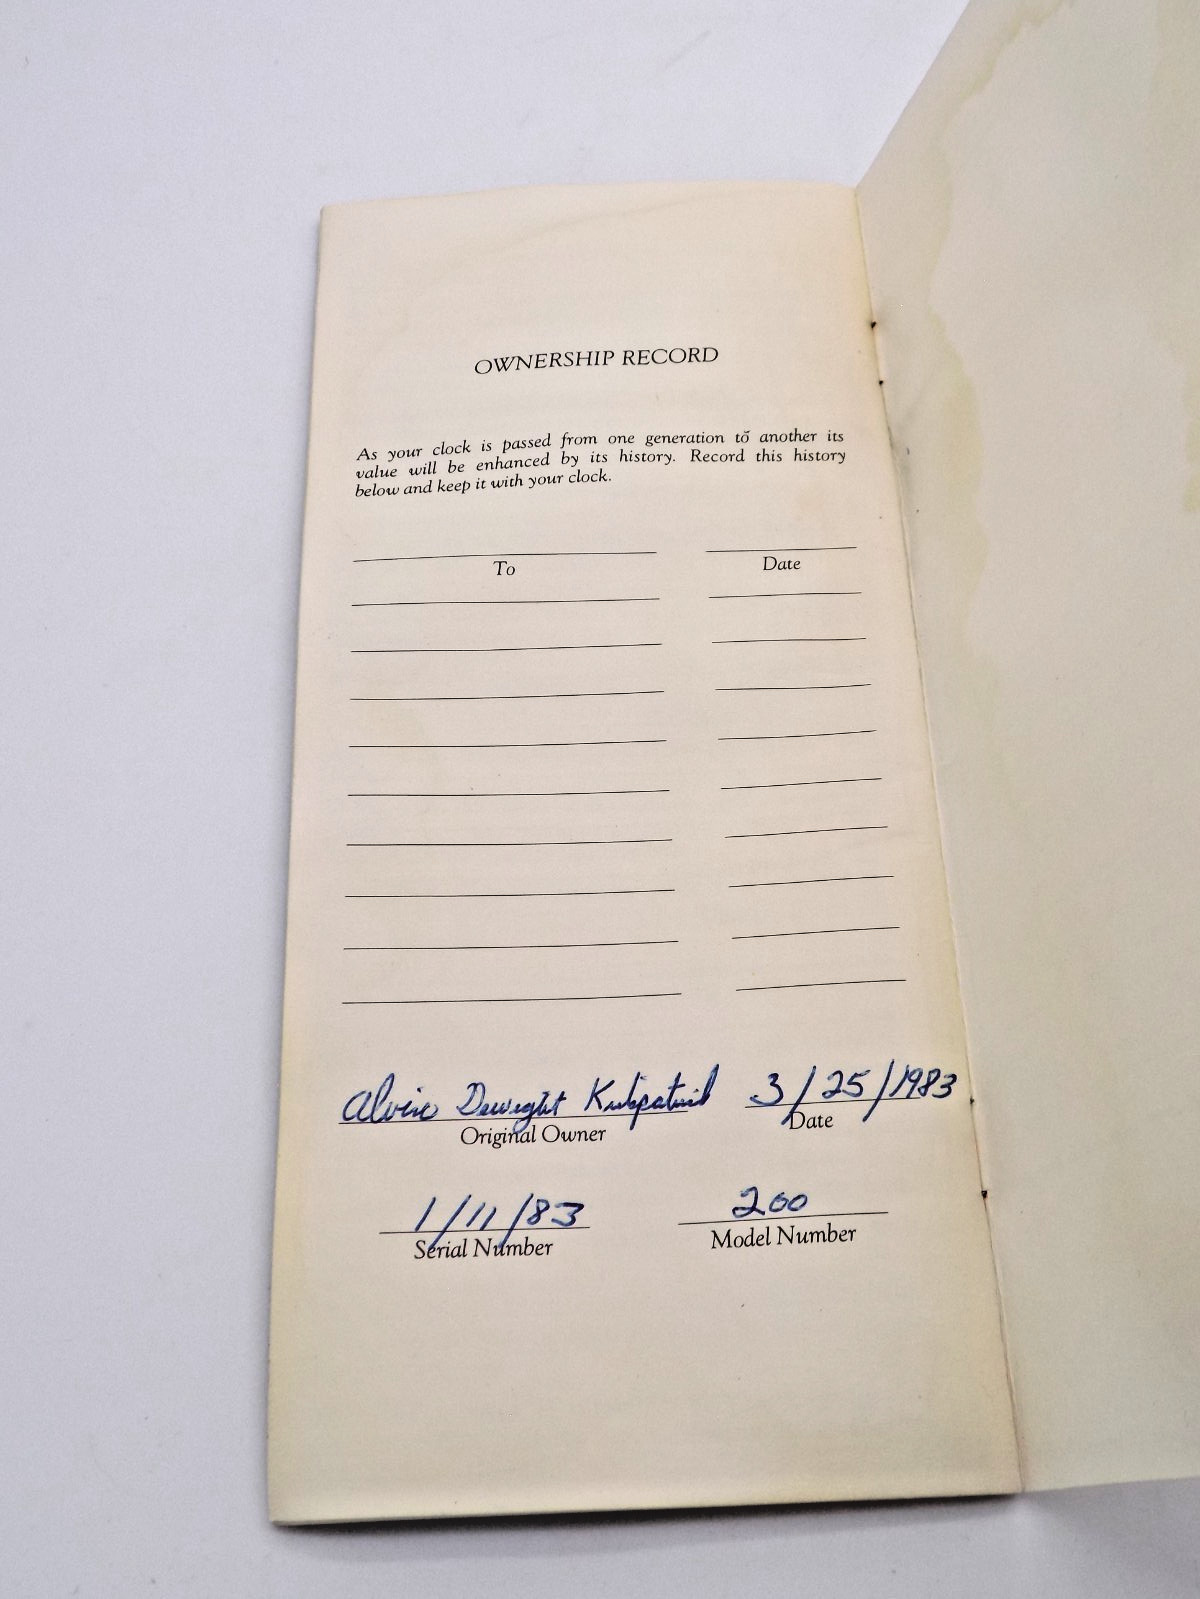 OWNERSHIP RECORD
As your clock is passed from one generation to another its
value will be enhanced by its history. Record this history
below and keep it with your clock.
To Date
Alvin Dwight Kirkpatrick 3/25/1983
Original Owner Date
1/11/83 200
Serial Number Model Number